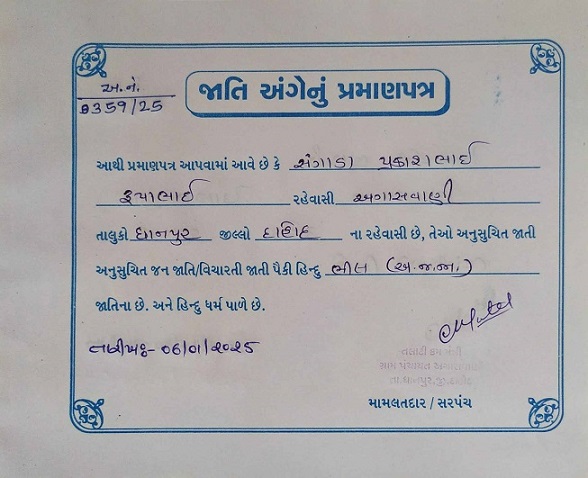 અ.નં.
8359/25
જાતિ અંગેનું પ્રમાણપત્ર
આથી પ્રમાણપત્ર આપવામાં આવે છે કે સંગાડા પ્રકાશભાઈ
રૂપાભાઈ રહેવાસી અગાસવાણી
તાલુકો ધાનપુર જીલ્લો દાહોદ ના રહેવાસી છે, તેઓ અનુસુચિત જાતી
અનુસુચિત જન જાતિ/વિચારતી જાતી પૈકી હિન્દુ ભીલ (અ.જ.જા.)
જાતિના છે. અને હિન્દુ ધર્મ પાળે છે.
તારીખઃ- 06/01/2025
તલાટી કમ મંત્રી
ગ્રામ પંચાયત અગાસવાણી
તા.ધાનપુર,જી.દાહોદ
મામલતદાર / સરપંચ